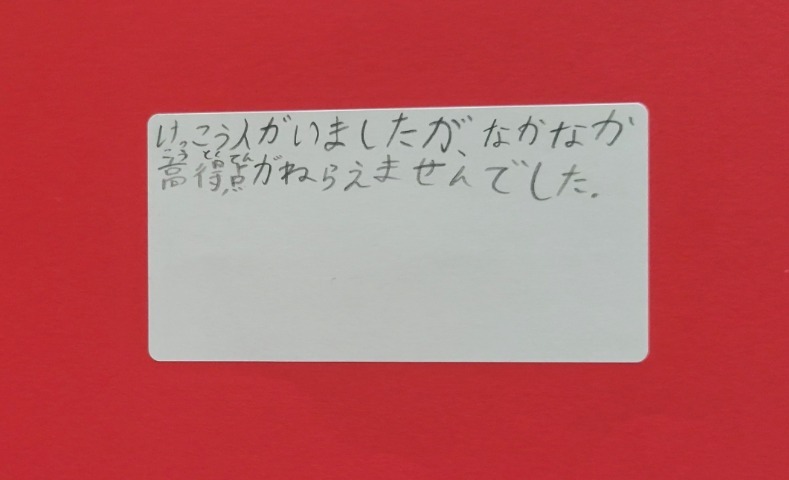 けっこう人がいましたが、なかなか
高得点がねらえませんでした.